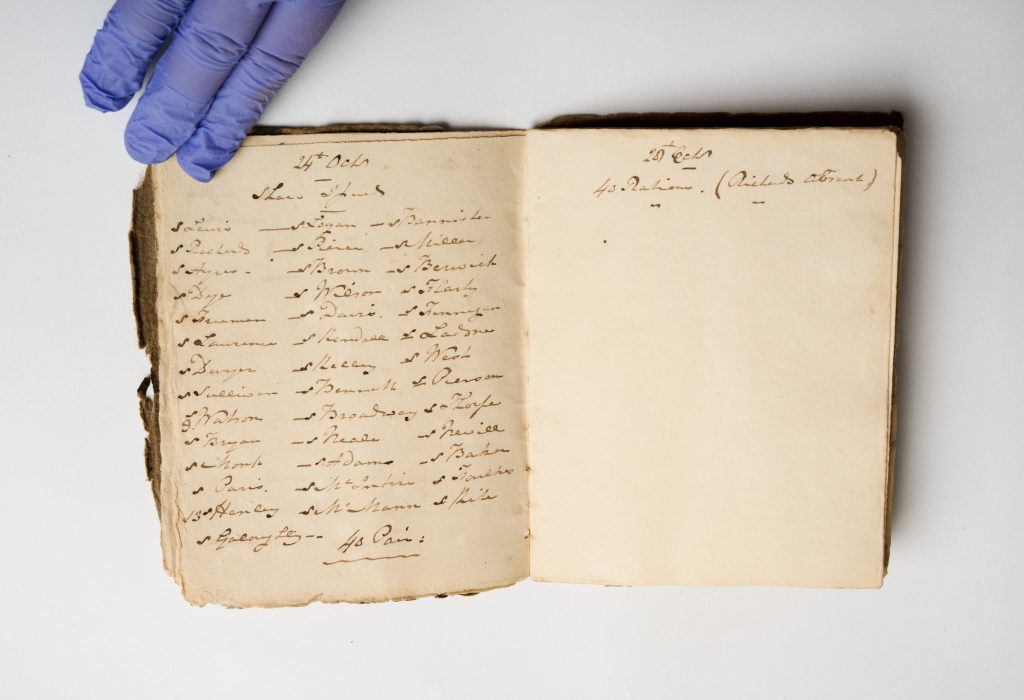 24th Octr
Shoes Issued
s Lewis — s Logan — s Bannister
s Richards — s Pierce — s Miller
s Ayres - — s Brown — s Berwick
s Dye — s Wilson s Flarty
s Freeman — s Davis. s Finnigan
s Laurence — s Kendall s Ladone
s Dwyer — s Kelley s West
s Sullivan — s Bennett s Pierson
s Watson — s Broadway s Thorpe
s Bryan — s Neale — s Nevill
s Monk — s Adams — s Baker
s Paris. — s McIntire s
s Henley — s McMann s Kile
s 40 Pair:
28th Octr
40 Rations. (Richards absent)